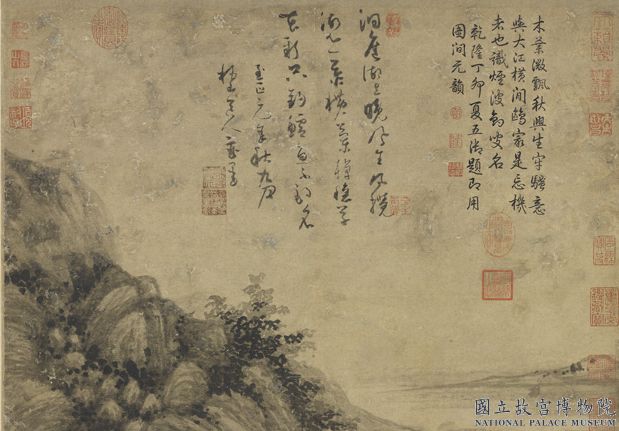 木葉微飄秋興生牢騷意
與大江橫閒鷗家是忘機
者也識煙波釣叟名
乾隆丁卯夏五御題即用
圖間元韻
洞庭湖上晚風生風攪
湖心一葉橫蘭棹穩草
花新只釣鱸魚不釣名
至正元年秋九月
梅花道人戲墨
國立故宮博物院
NATIONAL PALACE MUSEUM